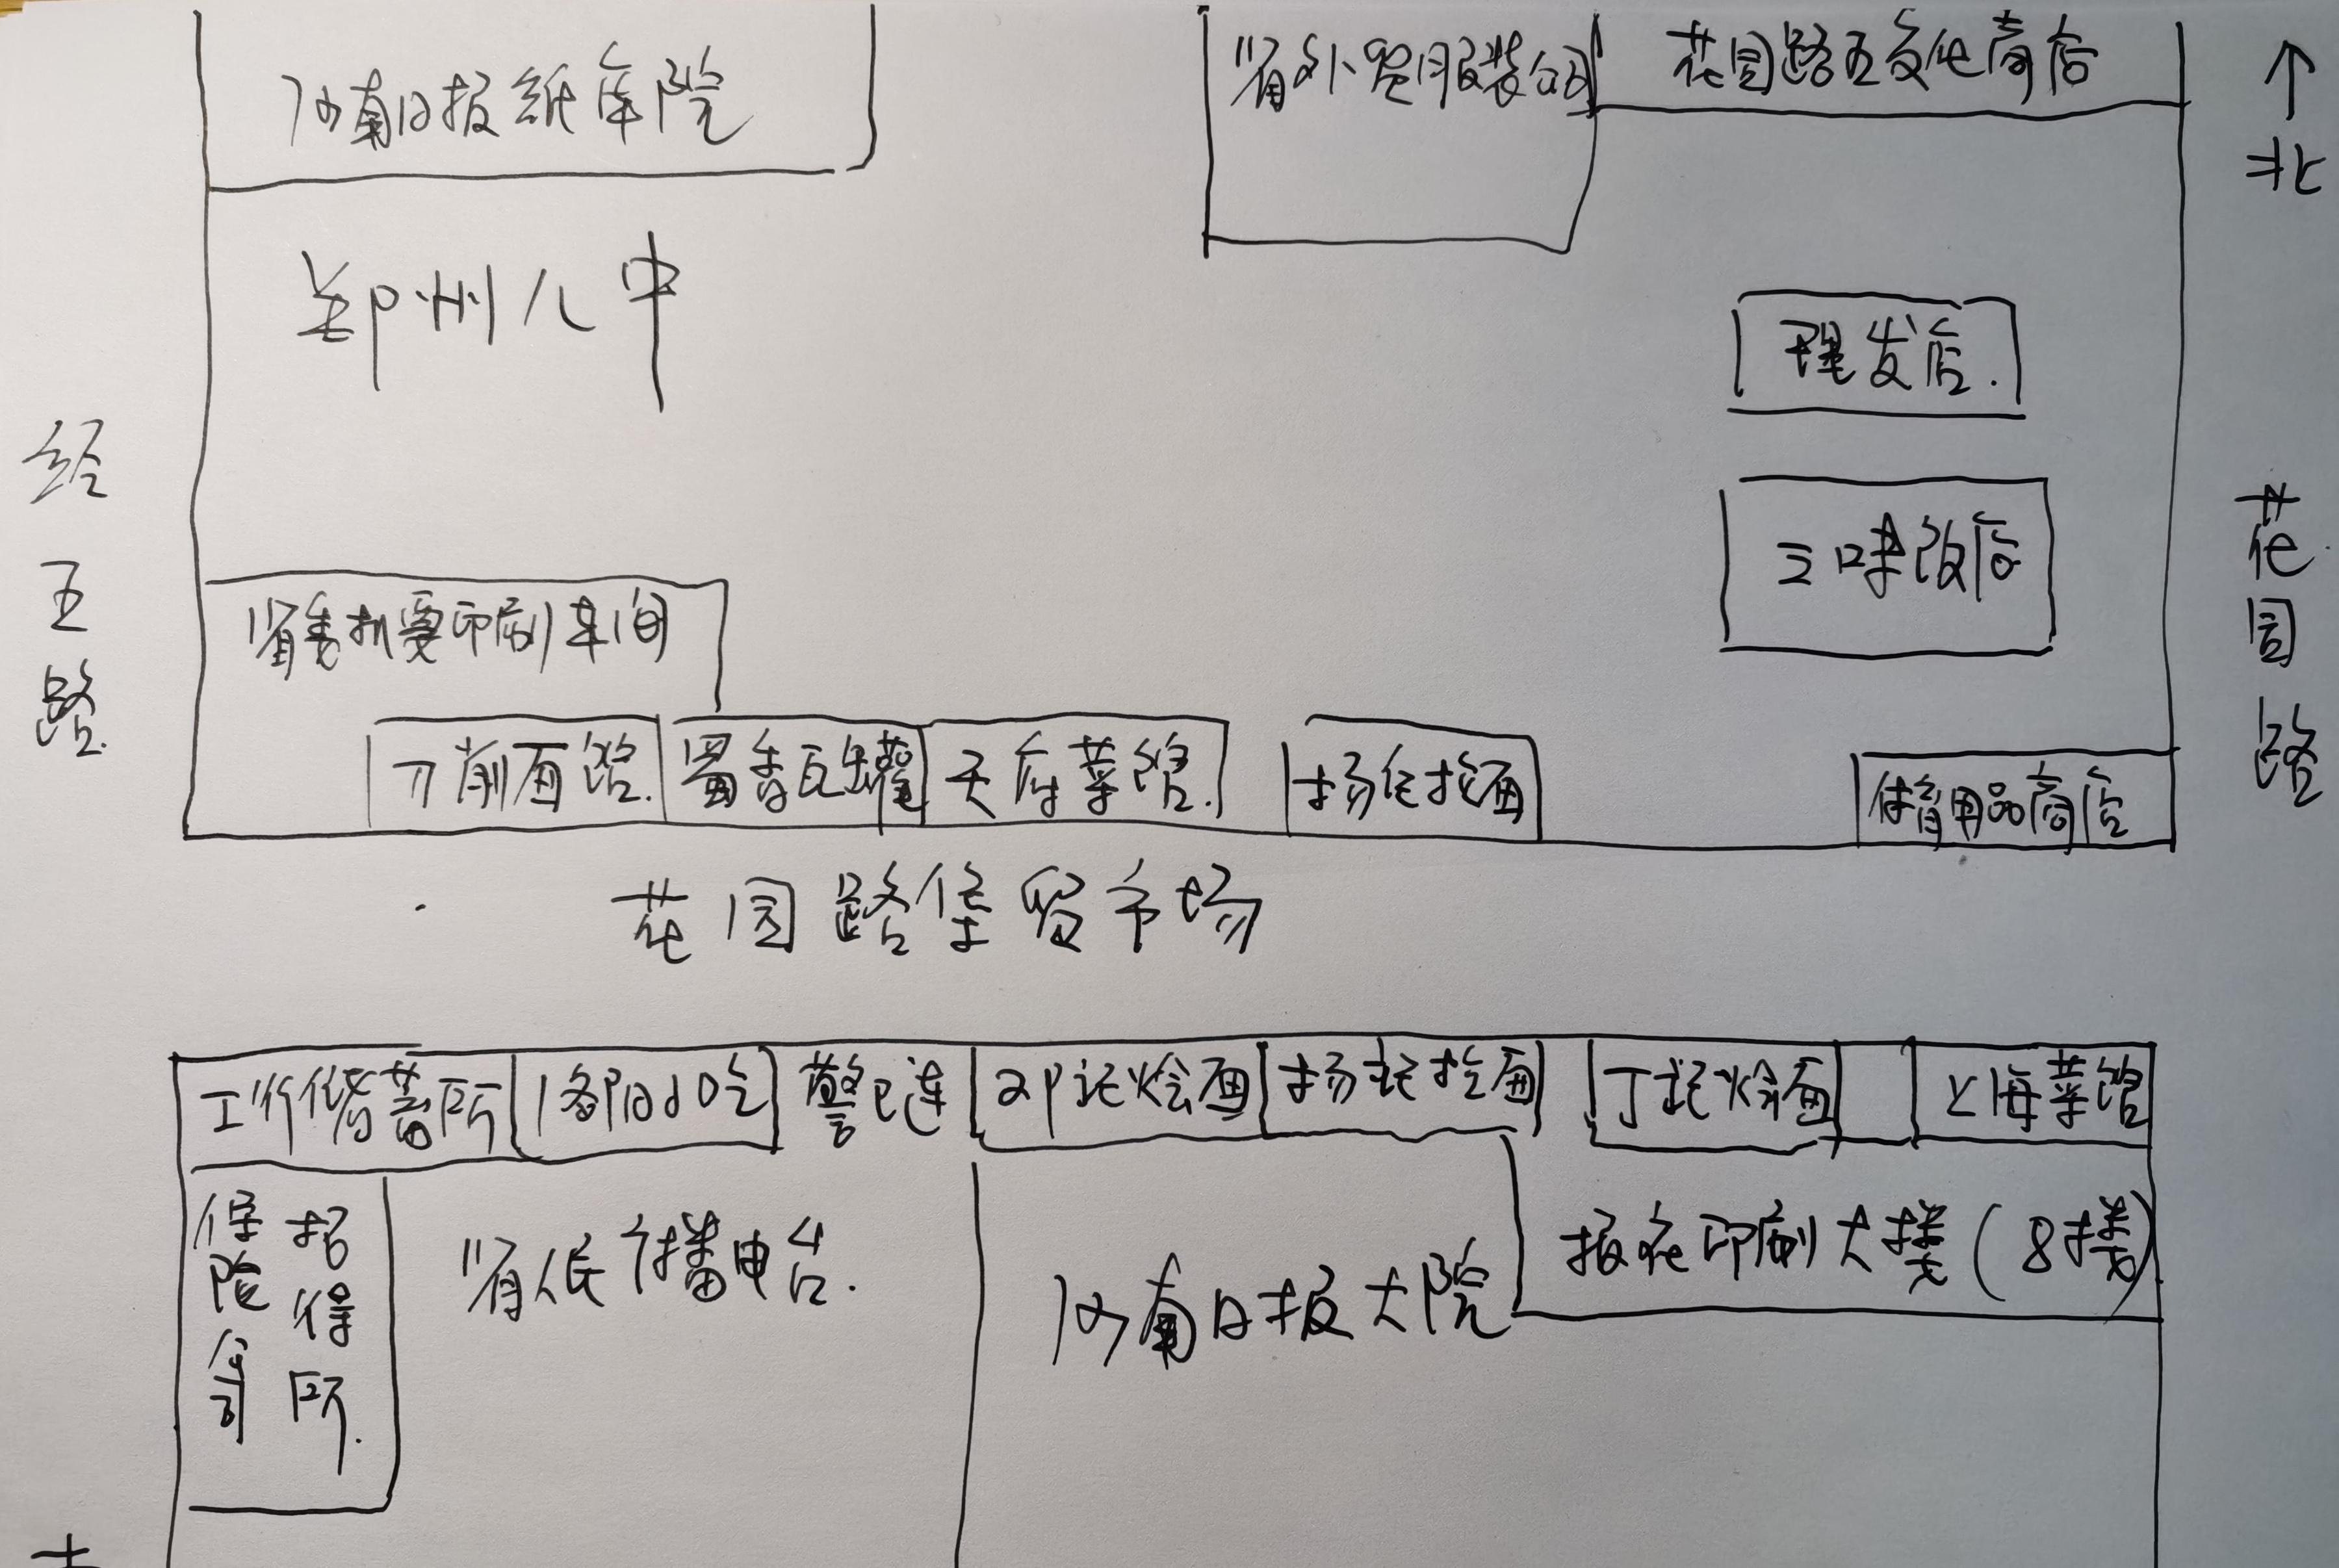 河南日报纸库院
省外贸服装公司
花园路五交化商店
↑
北
郑州八中
理发店.
三味改店
经五路
花园路
省委机要印刷车间
刀削面馆.
蜀香瓦罐
天府菜馆.
杨记拉面
体育用品商店
花园路集贸市场
工行储蓄所
警卫连
邙记烩面
杨记拉面
丁记烩面
上海菜馆
保险公司
招待所.
省依广播电台.
河南日报大院
报社印刷大楼(8楼)